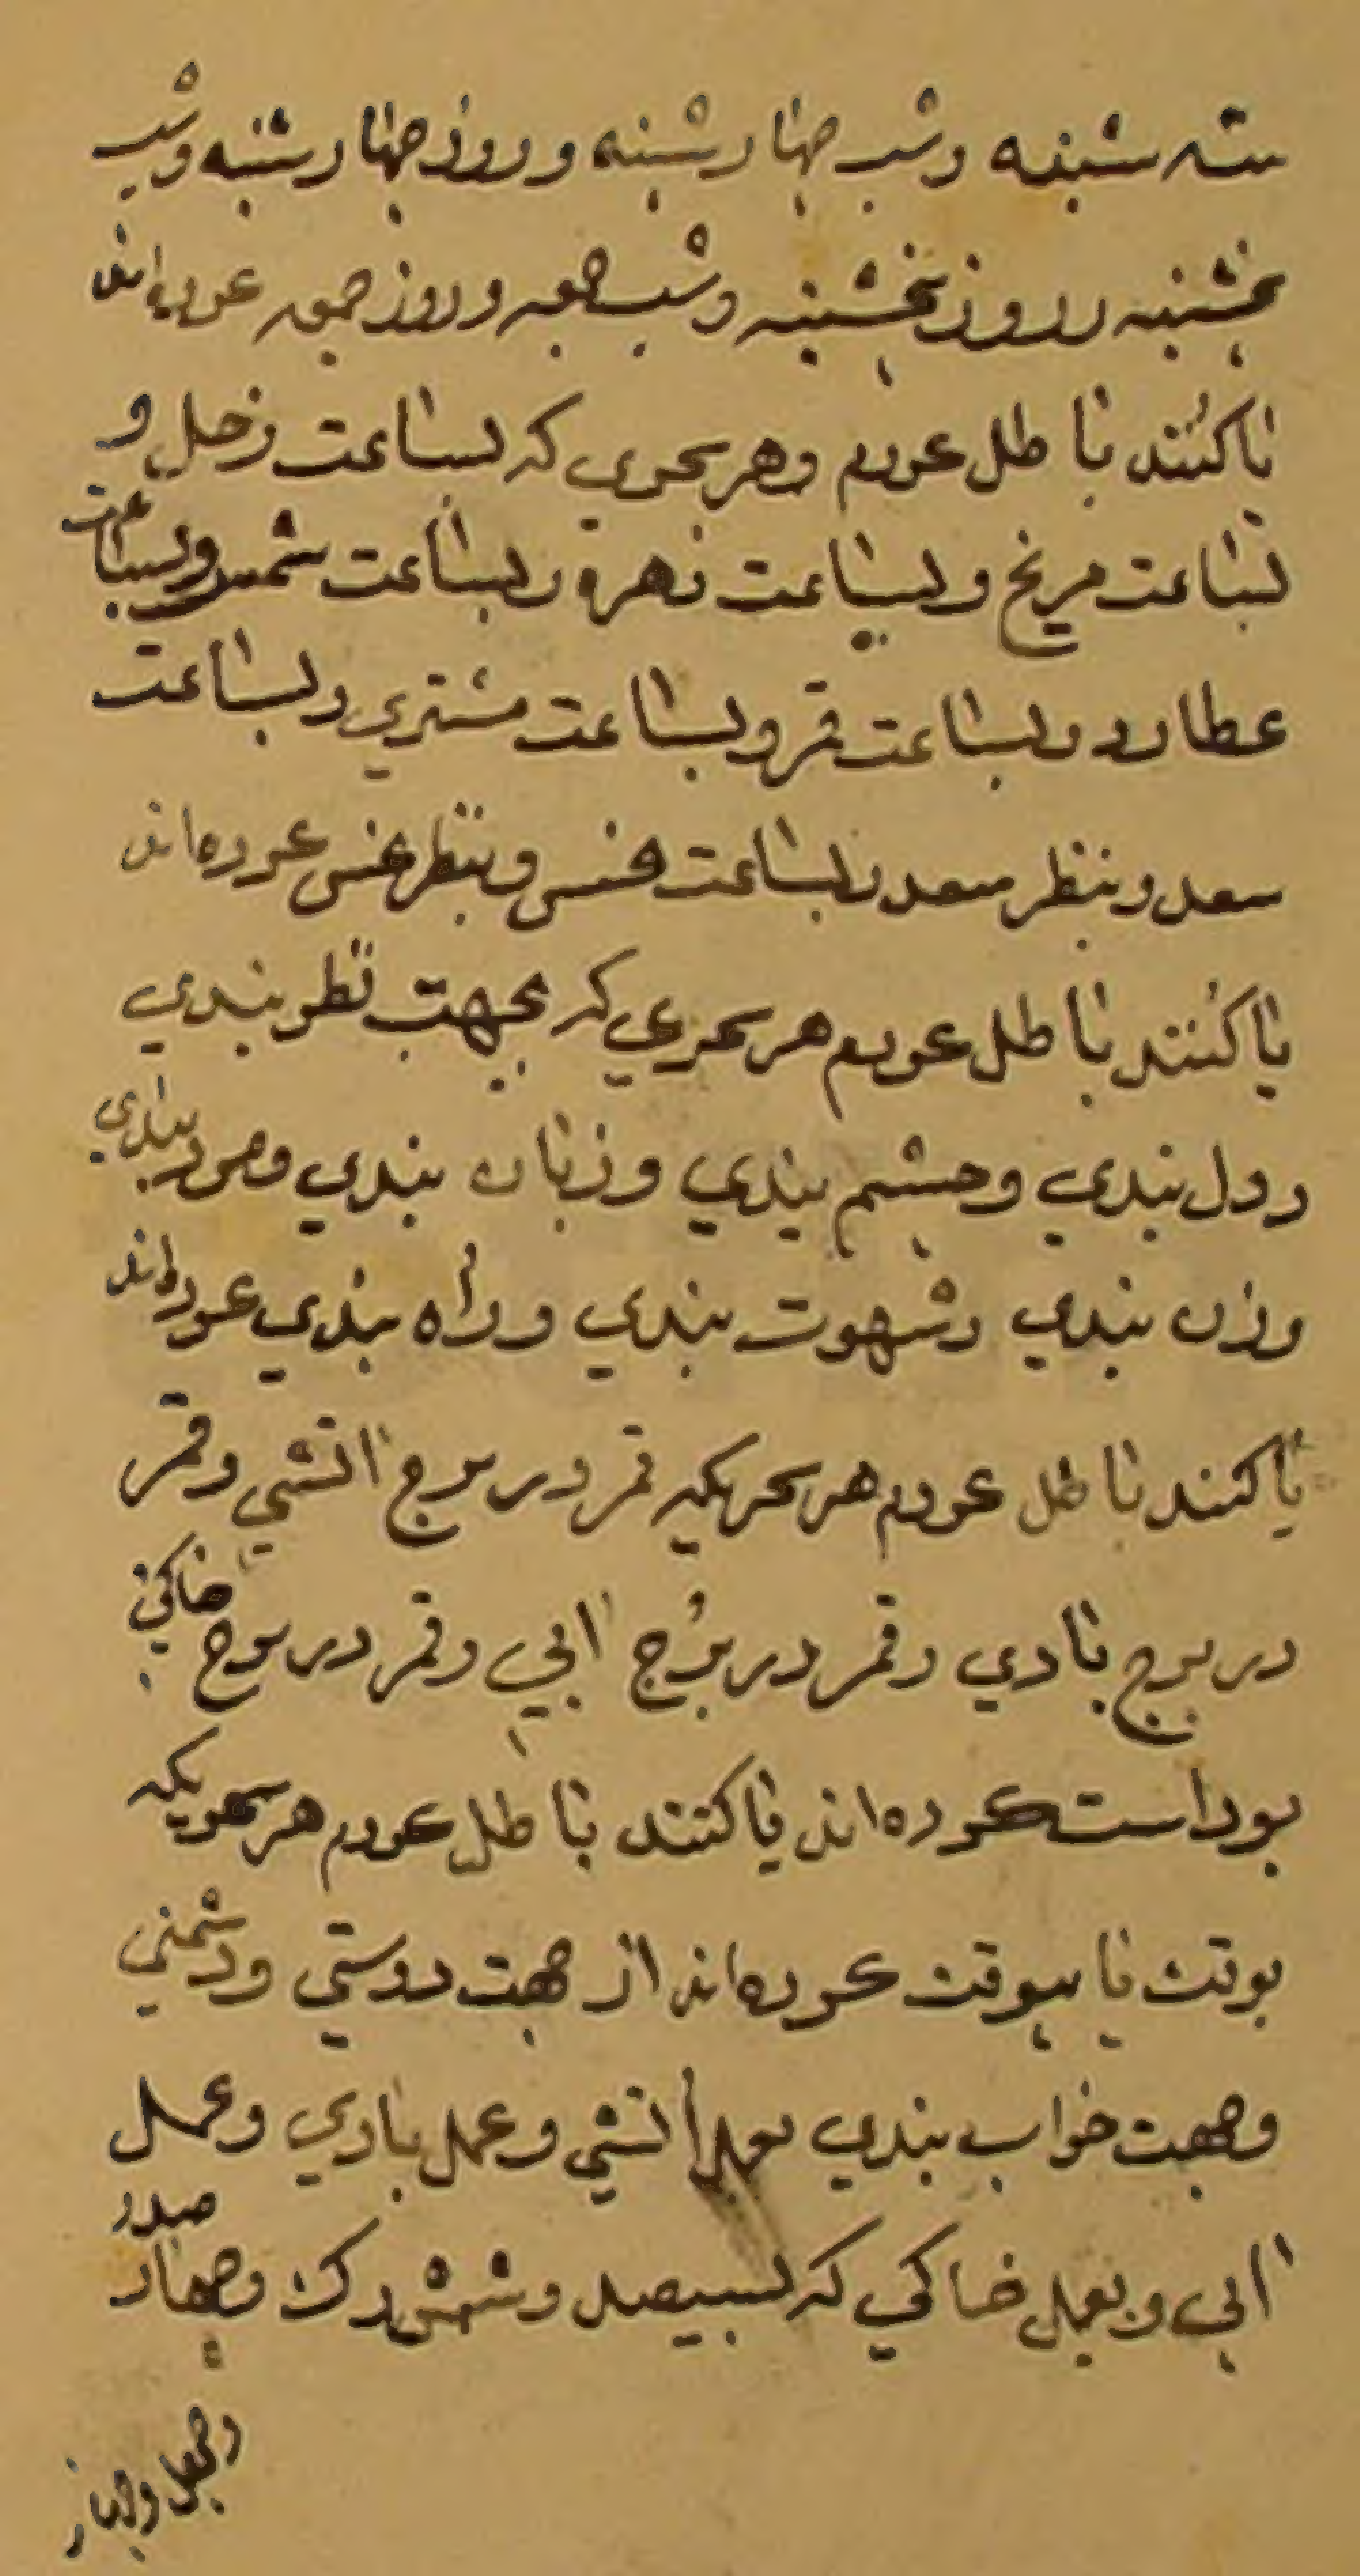 سه شنبه و شب چهارشنبه و روز چهارشنبه و شب
پنجشنبه و روز پنجشنبه و شب جمعه و روز جمعه کرده‌اند
یا کنند باطل کردم و هر سحری که بساعت زحل و
بساعت مریخ و بساعت زهره و بساعت شمس و بساعت
عطارد و بساعت قمر و بساعت مشتری و بساعت
سعد و بنظر سعد و بساعت نحس و بنظر نحس کرده‌اند
یا کنند باطل کردم هر سحری که بجهت نطر بندي
و دل بندي و چشم بندي و زبان بندي و مرد بندي
و زن بندي و شهوت بندي و راه بندي کرده‌اند
یا کنند باطل کردم هر سحریکه قمر در برج اتشي و قمر
در برج بادي و قمر در برج ابي و قمر در برج خاکي
بود است کرده‌اند یا کنند باطل کردم هر سحریکه
بوقت یا بیوقت کرده‌اند از جهت دوستي و دشمني
و جهت خواب بندي بعمل اتشي و عمل بادي و عمل
ابي و بعمل خاکي که بسیصد و شش رک و چهار صدر
و چهل و چهار